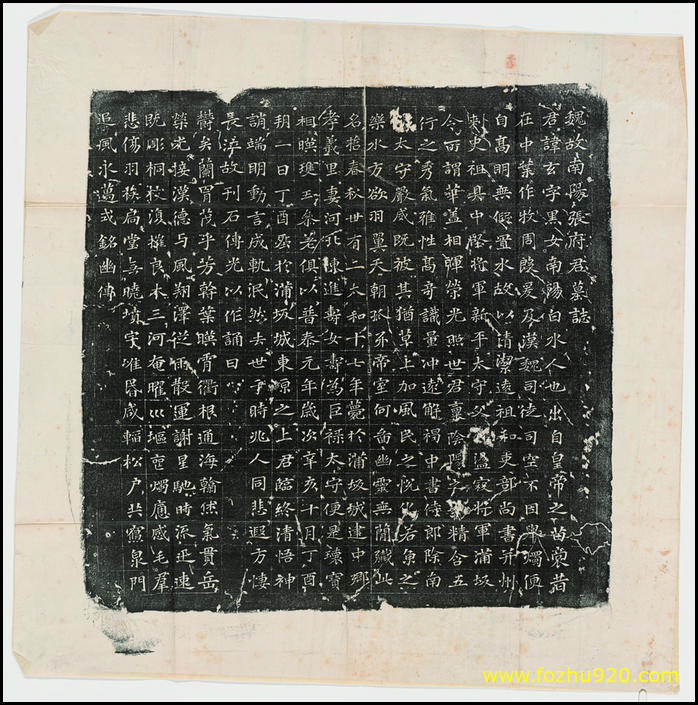 魏故南陽張府君墓誌
君諱玄字黑女南陽白水人也出自皇帝之苗裔昔
在中葉作牧周殷爰及漢魏司徒司空不因舉燭便
自高明無假置水故以清潔遠祖和吏部尚書并州
刾史祖具中堅將軍新平太守父盪寇將軍蒲坂
令所謂華蓋相暉榮光照世君稟陰陽之精含五
行之秀氣雅性高奇識量沖遠解褐中書侍郎除南
太守嚴威既被其猶草上加風民之悅若魚之
樂水方欲羽翼天朝牙帝室何啚幽靈無簡殲此
名哲春秋卅有二太和十七年薨於蒲坂城建中鄉
孝義里妻河北陳進壽女壽為巨祿太守便是瑰寶
相暎瓊玉參差俱以普泰元年歲次辛亥十月丁酉
朔一日丁酉葬於蒲坂城東原之上君臨終清悟神
誚端明動言成軌泯然去世于時兆人同悲遐方悽
長泣故刊石傳光以作誦曰
鬱矣蘭冑茂乎芳幹葉暎霄衢根通海翰休氣貫岳
榮光接漢德与風翔澤從雨散運謝星馳時流迅速
既彫桐枝復摧良木三河奄曜川塸燭痛感毛群
悲傷羽族扃堂無曉墳宇唯昬咸輀松戶共寢泉門
追風永邁式銘幽傳
www.fozhu920.com